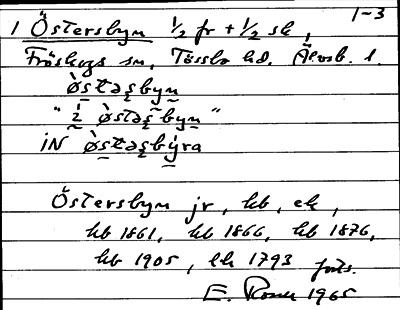 1-3
1 Östersbyn 1/2 fr + 1/2 sk,
Fröskogs sn, Tössbo hd. Älvsb. l.
ò̈stəʂbyn
"i ò̈stəʂbyn"
iN ò̈stəʂbýra
Östersbyn jr, kb, ek,
kb 1861, kb 1866, kb 1876,
kb 1905, lk 1793 forts.
E. 1965